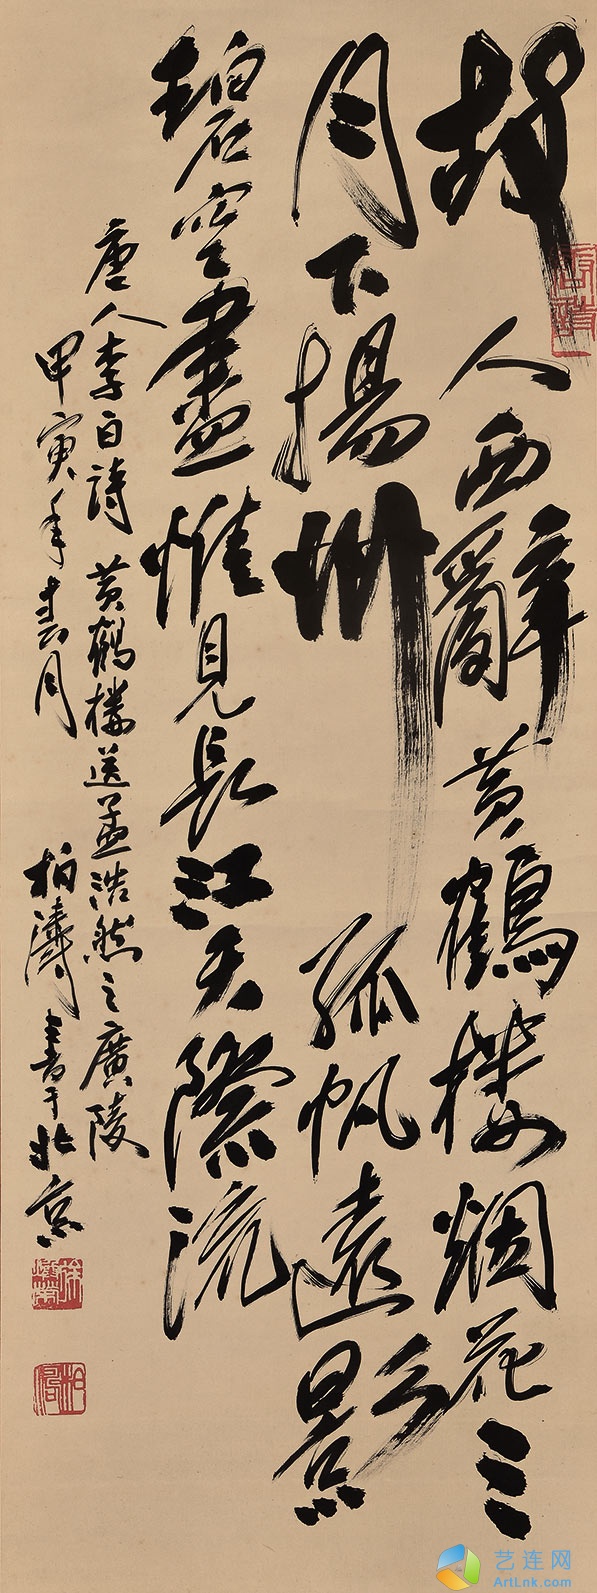 故人西辭黄鶴楼烟花三
月下揚州孤帆遠影
碧空盡惟見長江天際流
唐人李白詩黄鶴楼送孟浩然之廣陵
甲寅年春月
柏濤書于北京
艺连网
ArtLnk.com